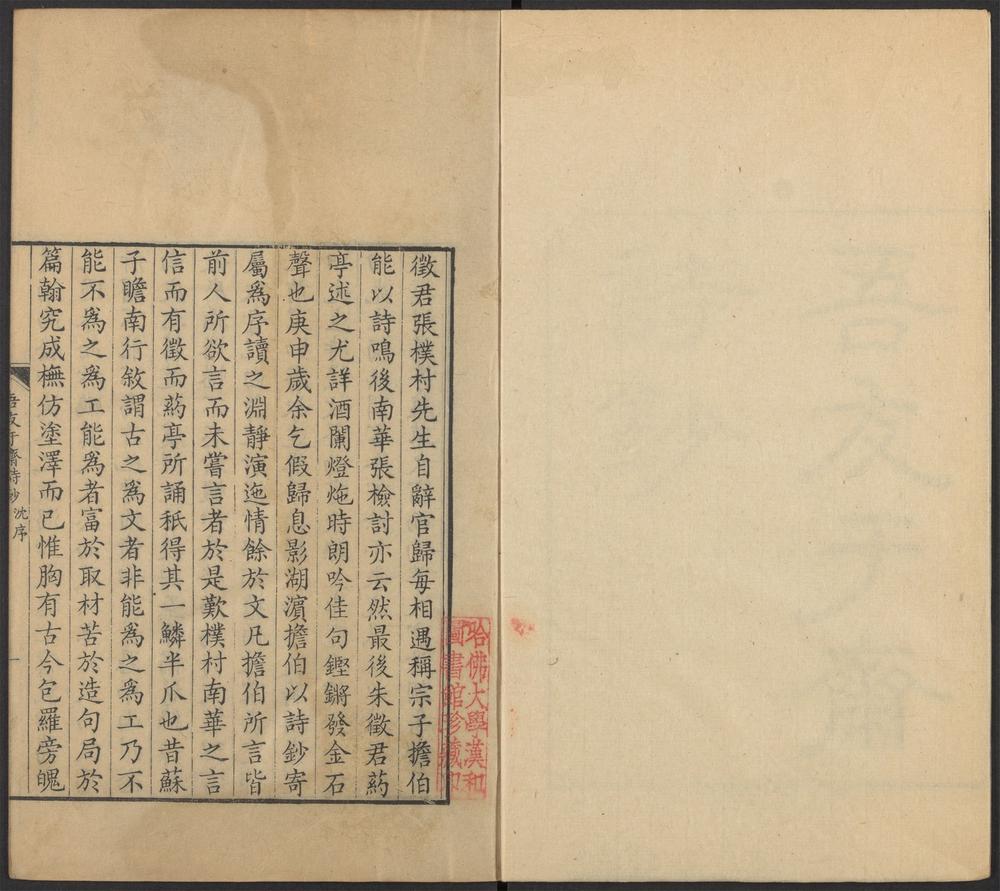 徵君張樸村先生自辭官歸每相遇稱宗子擔伯
能以詩鳴後南華張檢討亦云然最後朱徵君葯
亭述之尤詳酒闌燈炧時朗吟佳句鏗鏘發金石
聲也庚申歲余乞假歸息影湖濵擔伯以詩鈔寄
屬爲序讀之淵靜演迤情餘於文凡擔伯所言皆
前人所欲言而未嘗言者於是歎樸村南華之言
信而有徵而葯亭所誦秖得其一鱗半爪也昔蘇
子瞻南行敘謂古之爲文者非能爲之爲工乃不
能不爲之爲工能爲者富於取材苦於造句局於
篇翰究成橅仿塗澤而已惟胸有古今包羅旁魄
吾友于齋詩鈔 沈序
一
哈佛大學漢和
圖書館珍藏印